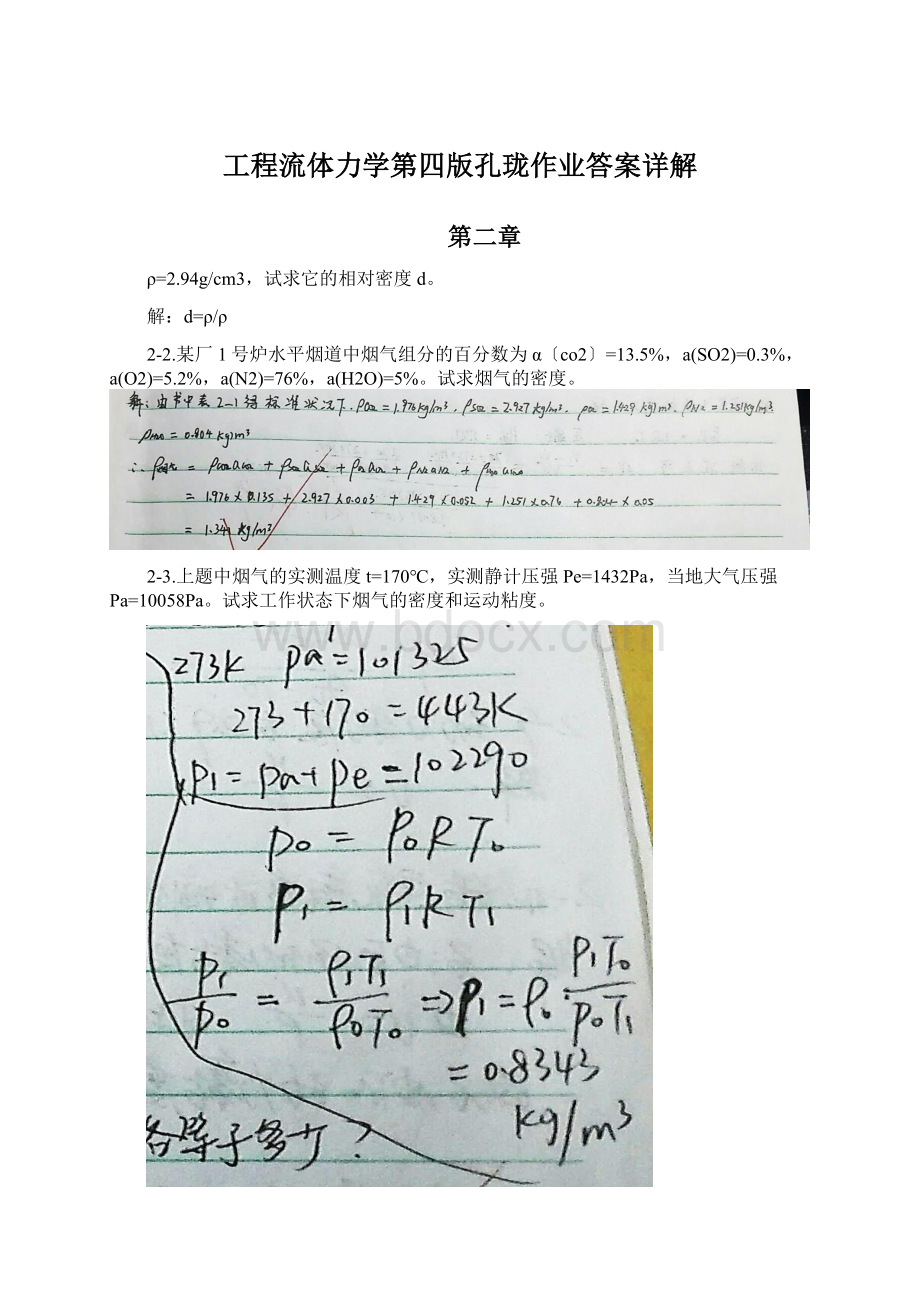 工程流体力学第四版孔珑作业答案详解
第二章
ρ=2.94g/cm3，试求它的相对密度 d。
解：d=ρ/ρ
2-2.某厂 1 号炉水平烟道中烟气组分的百分数为 α〔co2〕=13.5%，
a(SO2)=0.3%，a(O2)=5.2%，a(N2)=76%，a(H2O)=5%。试求烟气的密度。
解：由书中表2-1得标准状况下，ρCO2=1.976kg/m³，ρSO2=2.927kg/m³，ρO2=1.429kg/m³，ρN2=1.251kg/m³
ρH2O=0.804kg/m³
∴ρ烟气=ρCO2αCO2+ρSO2αSO2+ρO2αO2+ρN2αN2+ρH2OαH2O
=1.976×0.135+2.927×0.003+1.429×0.052+1.251×0.76+0.804×0.05
=1.341kg/m³
2-3.上题中烟气的实测温度 t=170℃，实测静计压强 Pe=1432Pa，当地大气压强
Pa=10058Pa。试求工作状态下烟气的密度和运动粘度。
www.bdocx.com
273K pa'=101325
273+170=443K
p1=pa+pe=102290
p0=ρ0RT0
p1=ρ1RT1
p1/p0=ρ1T1/ρ0T0⇒ρ1=ρ0·p1T0/p0T1
=0.8343
kg/m³
各等于多少？